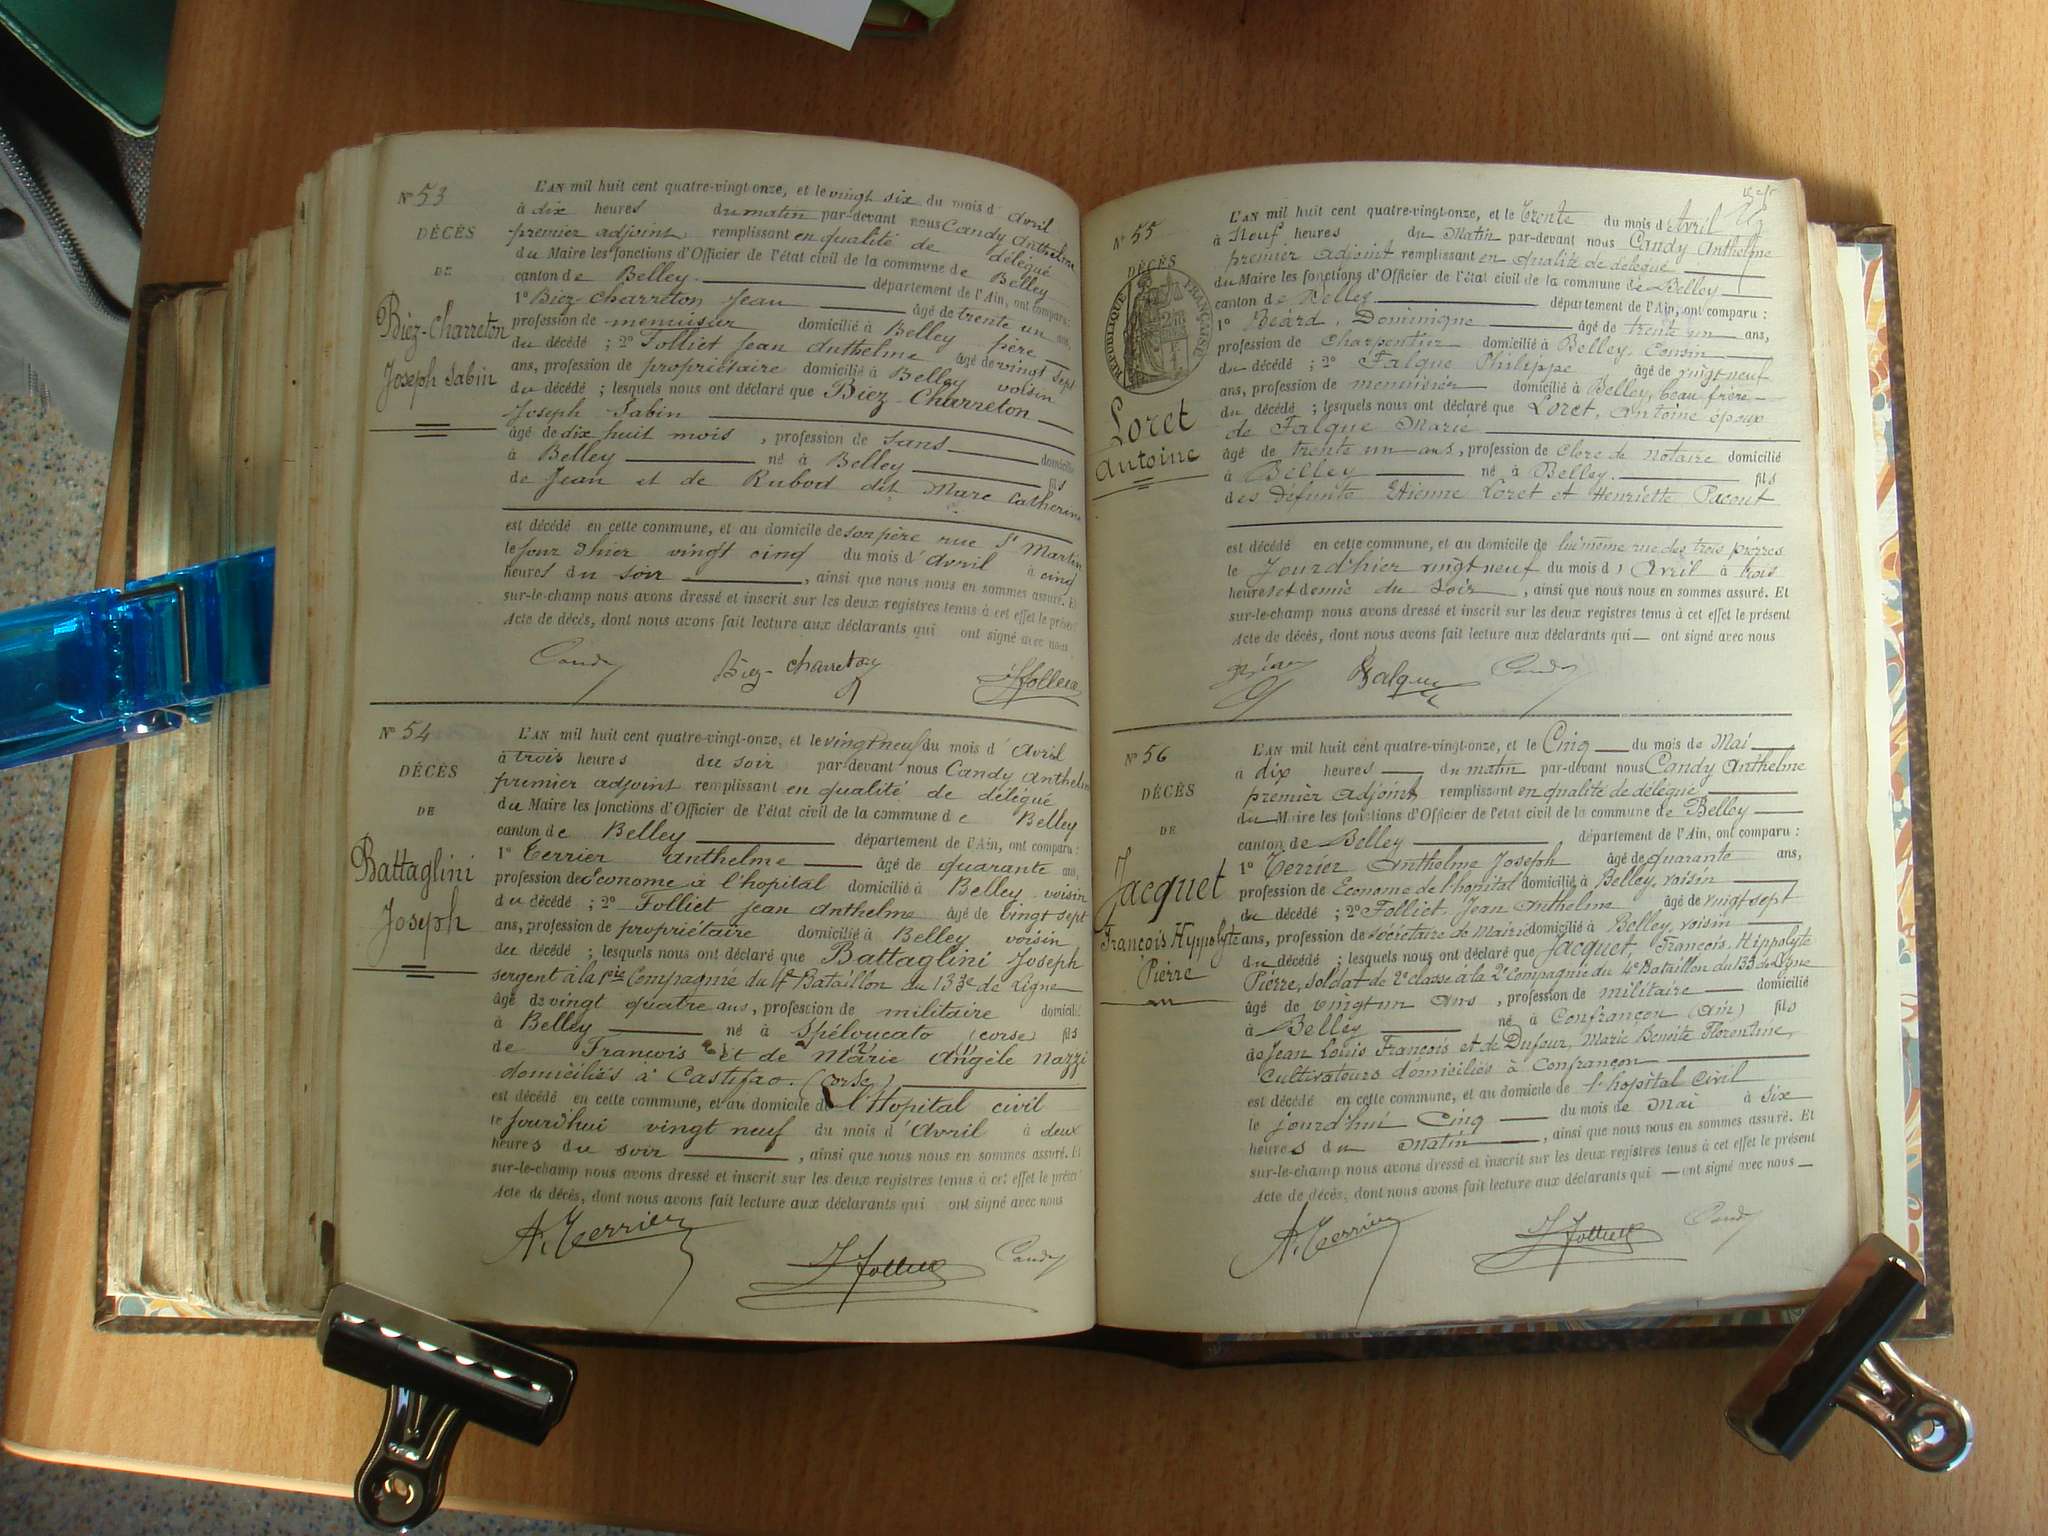 N° 53
DÉCÈS
DE
Biez-Charreton
Joseph Sabin
L'AN mil huit cent quatre-vingt-onze, et le vingt six du mois d'Avril
à dix heures du matin par-devant nous Candy Anthelme
premier adjoint remplissant en qualité de délégué
du Maire les fonctions d'Officier de l'état civil de la commune de Belley
canton de Belley département de l'Ain, ont comparu :
1° Biez-Charreton Jean âgé de trente un ans,
profession de menuisier domicilié à Belley père
du décédé ; 2° Folliet Jean Anthelme âgé de vingt sept
ans, profession de propriétaire domicilié à Belley voisin
du décédé ; lesquels nous ont déclaré que Biez-Charreton
Joseph Sabin
âgé de dix huit mois, profession de sans domicilié
à Belley né à Belley fils
de Jean et de Rubod dit Marc Catherine
est décédé en cette commune, et au domicile de son père rue St Martin
le jour d'hier vingt cinq du mois d'Avril à cinq
heures du soir, ainsi que nous nous en sommes assuré. Et
sur-le-champ nous avons dressé et inscrit sur les deux registres tenus à cet effet le présent
Acte de décès, dont nous avons fait lecture aux déclarants qui ont signé avec nous
Candy Biez-Charreton J Folliet
N° 54
DÉCÈS
DE
Battaglini
Joseph
L'AN mil huit cent quatre-vingt-onze, et le vingt neuf du mois d'Avril
à trois heures du soir par-devant nous Candy Anthelm
premier adjoint remplissant en qualité de délégué
du Maire les fonctions d'Officier de l'état civil de la commune de Belley
canton de Belley département de l'Ain, ont comparu :
1° Terrier Anthelme âgé de quarante ans,
profession de Econome à l'hopital domicilié à Belley voisin
du décédé ; 2° Folliet Jean Anthelme âgé de vingt sept
ans, profession de propriétaire domicilié à Belley voisin
du décédé ; lesquels nous ont déclaré que Battaglini Joseph
sergent à la 1re Compagnie du 4e Bataillon du 133e de Ligne
âgé de vingt quatre ans, profession de militaire domicilié
à Belley né à Spéloucato (corse) fils
de Francois et de Marie Angèle Nazzi
domiciliés à Castifao. (Corse)
est décédé en cette commune, et au domicile de l'Hopital civil
le jourd'hui vingt neuf du mois d'Avril à deux
heures du soir, ainsi que nous nous en sommes assuré. Et
sur-le-champ nous avons dressé et inscrit sur les deux registres tenus à cet effet le présent
Acte de décès, dont nous avons fait lecture aux déclarants qui ont signé avec nous
A. Terrier J Folliet Candy
N° 55
DÉCÈS
RÉPUBLIQUE FRANÇAISE
Loret
Antoine
L'AN mil huit cent quatre-vingt-onze, et le Trente du mois d'Avril
à Neuf heures du Matin par-devant nous Candy Anthelme
premier adjoint remplissant en qualité de délégué
du Maire les fonctions d'Officier de l'état civil de la commune de Belley
canton de Belley département de l'Ain, ont comparu :
1° Béard, Dominique âgé de trente un ans,
profession de Charpentier domicilié à Belley, Cousin
du décédé ; 2° Falque Philippe âgé de vingt neuf
ans, profession de menuisier domicilié à Belley, beau frère
du décédé ; lesquels nous ont déclaré que Loret, Antoine époux
de Falque Marie
âgé de trente un ans, profession de Clerc de Notaire domicilié
à Belley né à Belley. fils
des défunts Etienne Loret et Henriette Pacout
est décédé en cette commune, et au domicile de lui même rue des trois pierres
le Jourd'hier vingt neuf du mois d'Avril à trois
heures et demie du Soir, ainsi que nous nous en sommes assuré. Et
sur-le-champ nous avons dressé et inscrit sur les deux registres tenus à cet effet le présent
Acte de décès, dont nous avons fait lecture aux déclarants qui ont signé avec nous
Falque Candy
N° 56
DÉCÈS
DE
Jacquet
François Hippolyte
Pierre
L'AN mil huit cent quatre-vingt-onze, et le Cinq du mois de Mai
à dix heures du matin par-devant nous Candy Anthelme
premier adjoint remplissant en qualité de délégué
du Maire les fonctions d'Officier de l'état civil de la commune de Belley
canton de Belley département de l'Ain, ont comparu :
1° Terrier Anthelme Joseph âgé de quarante ans,
profession de Econome de l'hopital domicilié à Belley, voisin
du décédé ; 2° Folliet, Jean Anthelme âgé de vingt sept
ans, profession de sécrétaire de Mairie domicilié à Belley, voisin
du décédé ; lesquels nous ont déclaré que Jacquet, François, Hippolyte
Pierre, soldat de 2e classe à la 2e Compagnie du 4e Bataillon du 133 de Ligne
âgé de vingt un ans, profession de militaire domicilié
à Belley né à Confrançon (Ain) fils
de Jean Louis François et de Dufour, Marie Benoite Florentine,
Cultivateurs domiciliés à Confrançon
est décédé en cette commune, et au domicile de l'hopital Civil
le jourd'hui Cinq du mois de Mai à Six
heures du Matin, ainsi que nous nous en sommes assuré. Et
sur-le-champ nous avons dressé et inscrit sur les deux registres tenus à cet effet le présent
Acte de décès, dont nous avons fait lecture aux déclarants qui ont signé avec nous
A. Terrier J Folliet Candy